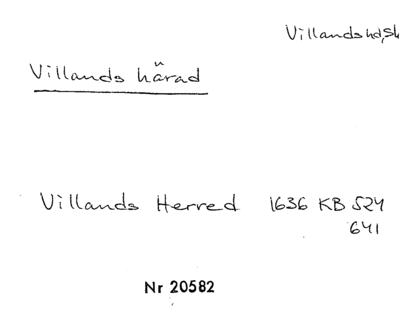 Villands hd, Sk
Villands härad
Villands Herred 1636 KB 524
641
Nr 20582